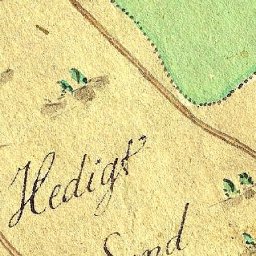 Hedigt
Sand